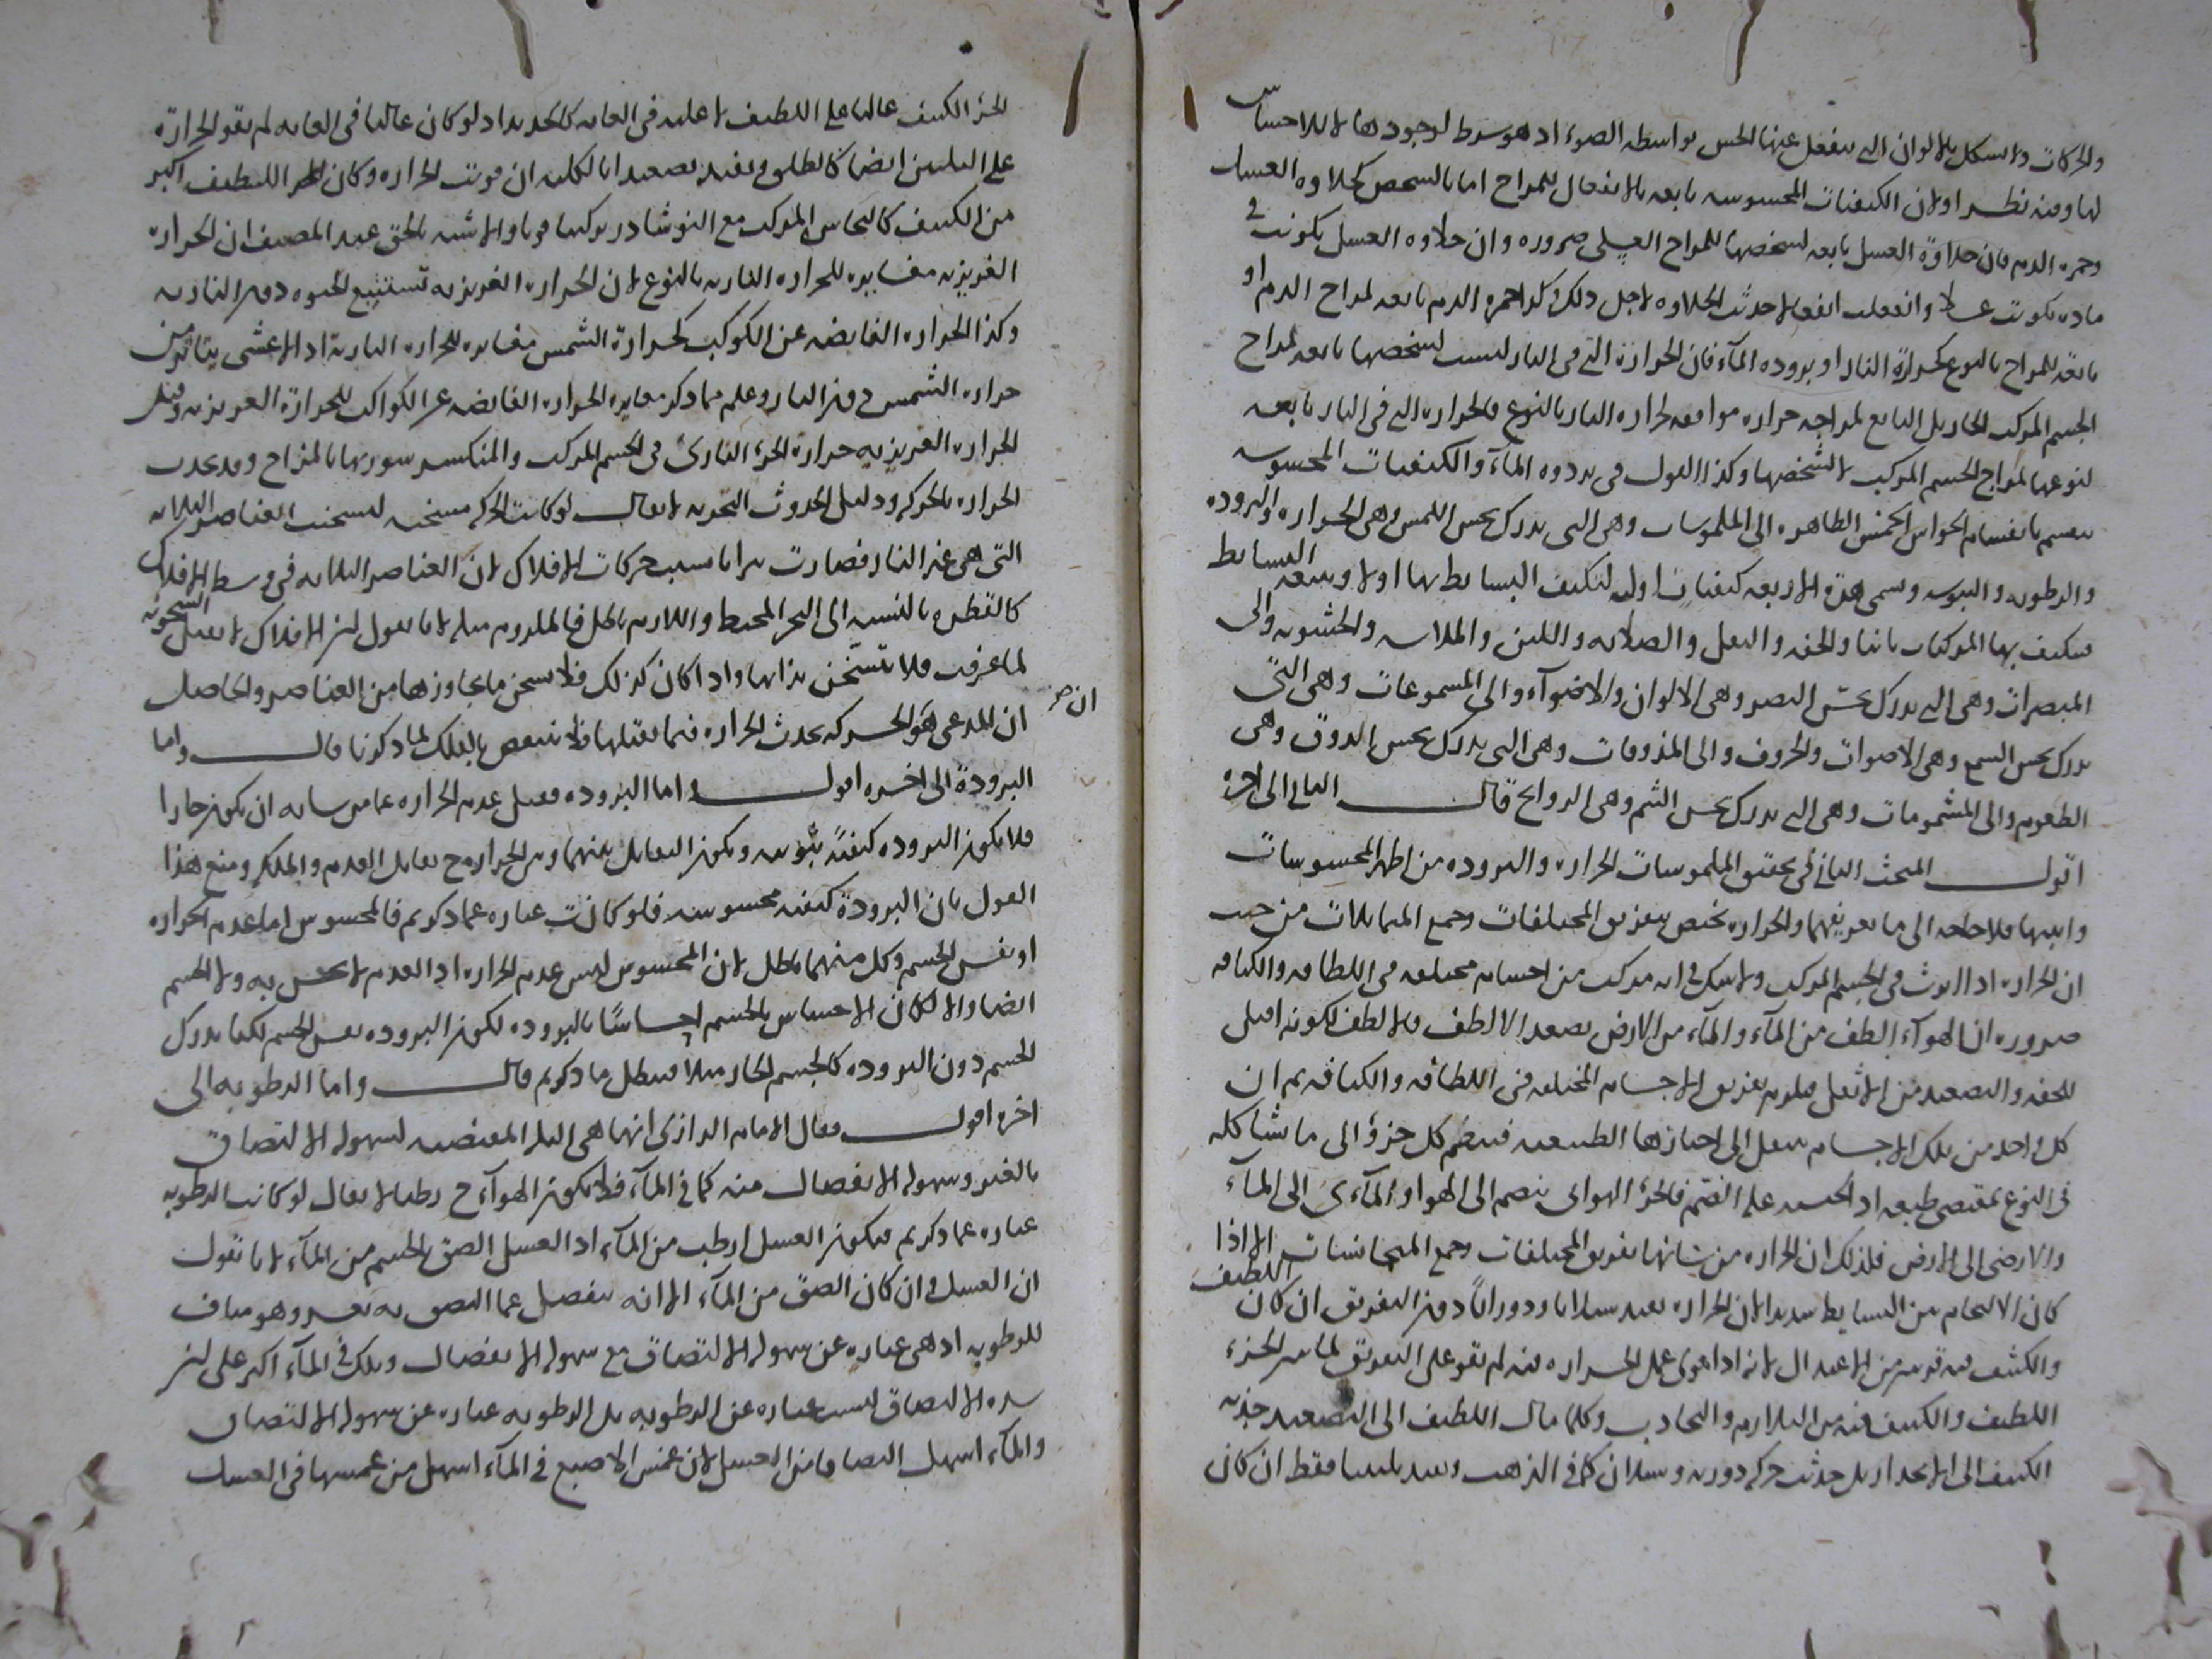 والحركات والشكل بالالوان التى ينفعل عنها الحس بواسطه الضوء اذ هو شرط لوجودها لا للاحساس
لها وفيه نظر اولان الكيفيات المحسوسه تابعه بالانفعال للمزاح اما بالشخص كحلاوه العسل
وحمره الدم فان حلاوة العسل تابعه لشخصها للمزاح العسلى ضروره وان حلاوه العسل تكونت فى
ماده تكونت عسلا وانفعلت انفعالا حدثت الحلاوه لاجل ذلك وكذا حمره الدم تابعه لمزاح الدم او
تابعه للمزاح بالنوع كحرارة النار او بروده المآء فان الحرارة التى فى النار ليست لشخصها تابعه لمزاح
الجسم المركب الحار بل التابع لمزاجه حراره موافقه لحراره النار بالنوع فالحراره التى فى النار تابعه
لنوعها لمزاج الجسم المركب لا لشخصها وكذا القول فى بروده المآء والكيفيات المحسوسه
تنقسم بانقسام الحواس الخمس الظاهره الى الملموسات وهى التى تدرك بحس اللمس وهى الحراره والبروده
والرطوبه واليبوسه وتسمى هذه الاربعه كيفيات اولى لتكيف البسايط بها اولا وتتبعه البسايط
فتتكيف بها المركبات ثانيا والخفه والثقل والصلابه واللين والملاسه والخشونه والى
المبصرات وهى التى تدرك بحس البصر وهى الالوان والاضوآء والى المسموعات وهى التى
تدرك بحس السمع وهى الاصوات والحروف والى المذوقات وهى التى تدرك بحس الذوق وهى
الطعوم والى المشمومات وهى التى تدرك بحس الشم وهى الروايح قال الثانى الى اخره
اقول المبحث الثانى فى تحقيق الملموسات الحراره والبروده من اظهر المحسوسات
وابينها فلا حاجه الى ما يعرفهما والحراره تختص بتفريق المختلفات وجمع المتماثلات من حيث
ان الحراره اذا اثرت فى الجسم المركب ولا شك فى انه مركب من اجسام مختلفه فى اللطافه والكثافه
ضروره ان الهوآء الطف من المآء والمآء من الارض يصعد الالطف فالالطف لكونه اقبل
للخفه والتصعيد من الاثقل فيلزم تفريق الاجسام المختلفه فى اللطافه والكثافه ثم ان
كل واحد من تلك الاجسام ينتقل الى احيازها الطبيعيه فينضم كل جزؤ الى ما يشاكله
فى النوع بمقتضى طبعه اذ الجنسيه عله الضم فالجزؤ الهوائى ينضم الى الهوا والمآءى الى المآء
والارضى الى الارض فلذلك ان الحراره من شانها تفريق المختلفات وجمع المتجانسات الا اذا
كان الالتحام بين البسايط شديدا لان الحراره تفيد سيلانا ودورانًا دون التفريق ان كان اللطيف
والكثيف فيه قريبين من الاعتدال لانه اذا قوى عمل الحراره فيه لم تقو على التفريق لما بين الجزء
اللطيف والكثيف فيه من التلازم والتجاذب وكلما مال اللطيف الى التصعيد جذبه
الكثيف الى الانحدار بل حدثت حركه دوريه وسيلان كما فى الذهب وتفيد تليينا فقط ان كان
الجزؤ الكثيف غالبا على اللطيف لا غلبه فى الغايه كالحديد اذ لو كان غالبا فى الغايه لم تقو الحرارة
على التليين ايضا كالطلق وتفيد تصعيدا بالكليه ان قويت الحراره وكان الجزؤ اللطيف اكثر
من الكثيف كالنحاس المركب مع النوشادر تركيبا قويا والاشبه بالحق عند المصنف ان الحراره
الغريزيه مغايره للحراره الناريه بالنوع لان الحراره الغريزيه تستتبع الحيوه دون الناريه
وكذا الحراره الفايضه عن الكوكب كحرارة الشمس مغايره للحراره الناريه اذ الاعشى يتاذى من
حراره الشمس دون النار وعلم مما ذكر مغايره الحراره الفايضه عن الكواكب للحرارة الغريزيه وقيل
الحراره الغريزيه حرارة الجزؤ النارى فى الجسم المركب والمنكسر سورتها بالمزاح وقد تحدث
الحراره بالحركه ودليل الحدوث التجربه لا يقال لو كانت الحركه مسخنه لسخنت العناصر الثلاثه
التى هى غير النار فصارت نيرانا بسبب حركات الافلاك لان العناصر الثلاثه فى وسط الافلاك
كالقطره بالنسبه الى البحر المحيط واللازم باطل فالملزوم مثله لانا نقول ان الافلاك لا تقبل السخونه
لما عرفت فلا تتسخن بذاتها واذا كان كذلك فلا يسخن ما يجاورها من العناصر والحاصل
ان المدعى هو ان الحركه تحدث الحراره فيما يقبلها فلا ينتقض بالفلك لما ذكرنا قال واما
البرودة الى اخره اقول واما البروده فقيل عدم الحراره عما من شانه ان يكون حارا
فلا تكون البروده كيفيةً ثبوتيه ويكون التقابل بينهما وبين الحراره ح تقابل العدم والملكه ومنع هذا
القول بان البرودة كيفيه محسوسه فلو كانت عباره عما ذكرتم فالمحسوس اما عدم الحراره
او نفس الجسم وكل منهما باطل لان المحسوس ليس عدم الحراره اذ العدم لا يحس به ولا الجسم
ايضا والا لكان الاحساس بالجسم احساسًا بالبروده لكون البروده نفس الجسم لكنا ندرك
الجسم دون البروده كالجسم الحار مثلا فبطل ما ذكرتم قال واما الرطوبه الى
اخره اقول فقال الامام الرازى انها هى البله المقتضيه لسهوله الالتصاق
بالغير وسهوله الانفصال منه كما فى المآء فلا يكون الهوآء ح رطبا لا يقال لو كانت الرطوبه
عباره عما ذكرتم فيكون العسل ارطب من المآء اذ العسل الصق بالجسم من المآء لانا نقول
ان العسل وان كان الصق من المآء الا انه ينفصل عما التصق به بعسر وهو مناف
للرطوبه اذ هى عباره عن سهوله الالتصاق مع سهوله الانفصال وذلك فى المآء اكثر على ان
شده الالتصاق ليست عباره عن الرطوبه بل الرطوبه عباره عن سهوله الالتصاق
والمآء اسهل التصاقا من العسل لان غمس الاصبع فى المآء اسهل من غمسها فى العسل